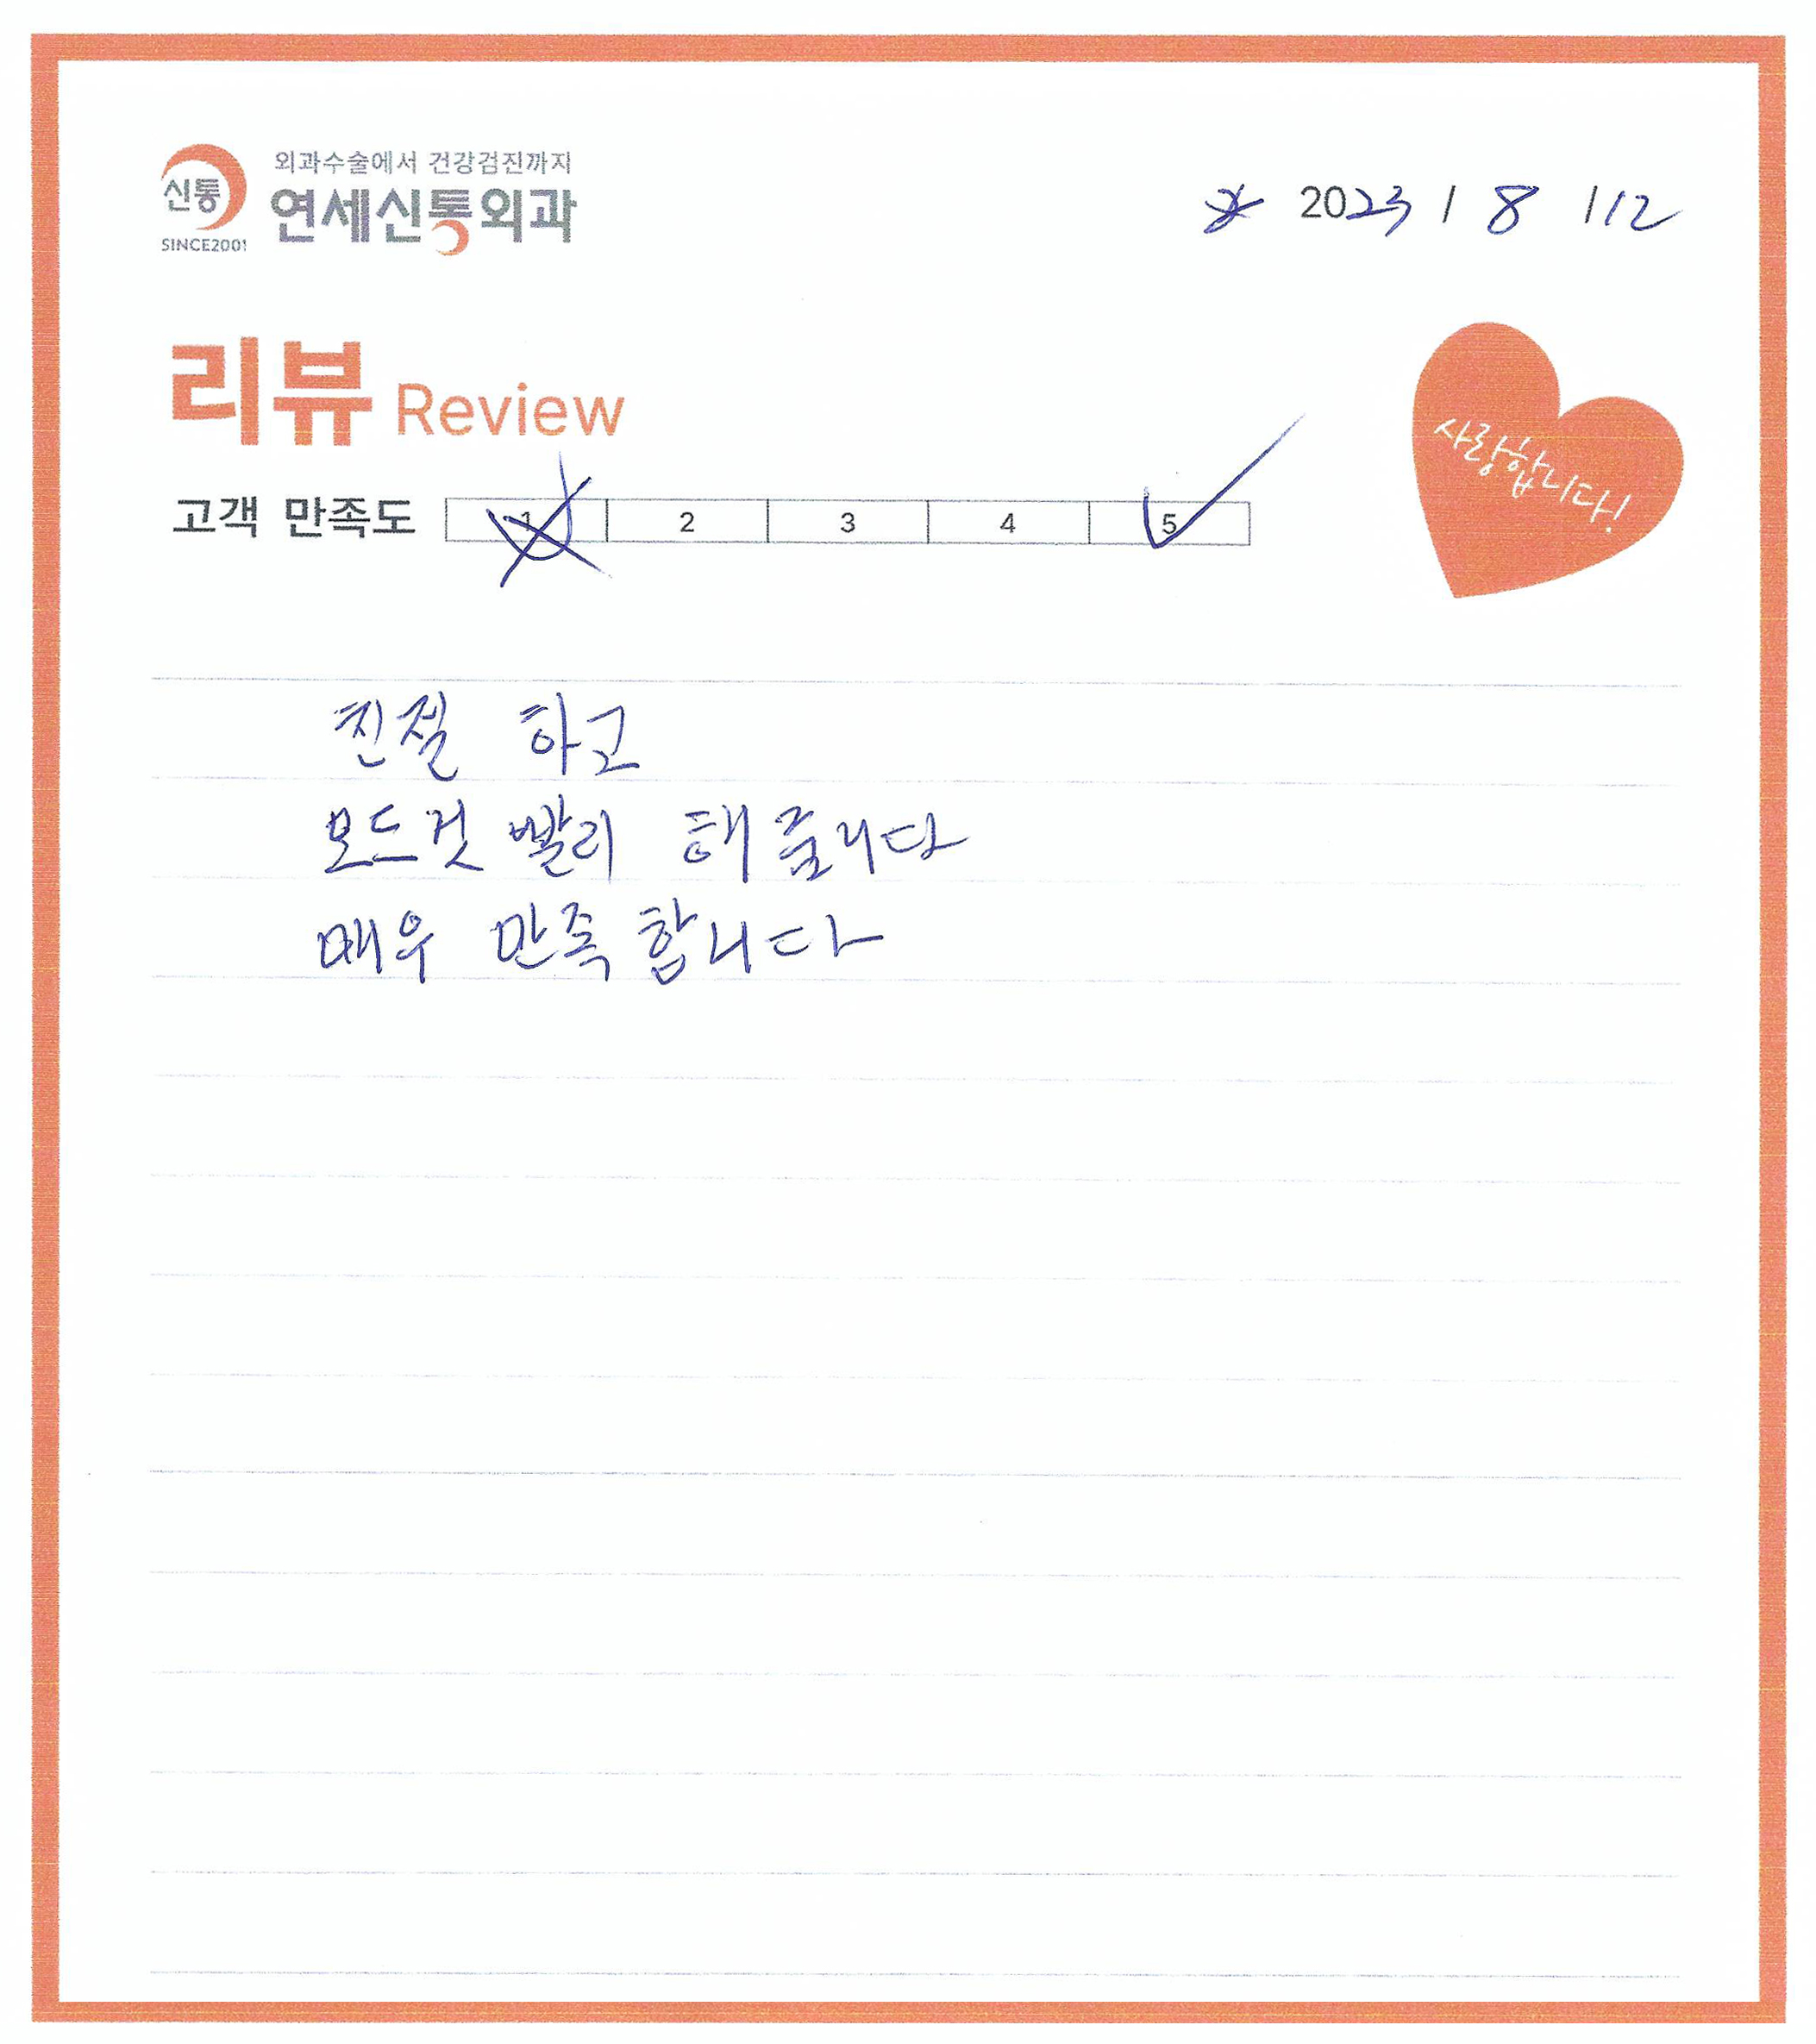 신통
SINCE2001
외과수술에서 건강검진까지
연세신통외과
2023 / 8 / 12
리뷰 Review
사랑합니다!
고객 만족도 1 2 3 4 5
친절 하고
모드것 빨리 해줍니다
매우 만족합니다